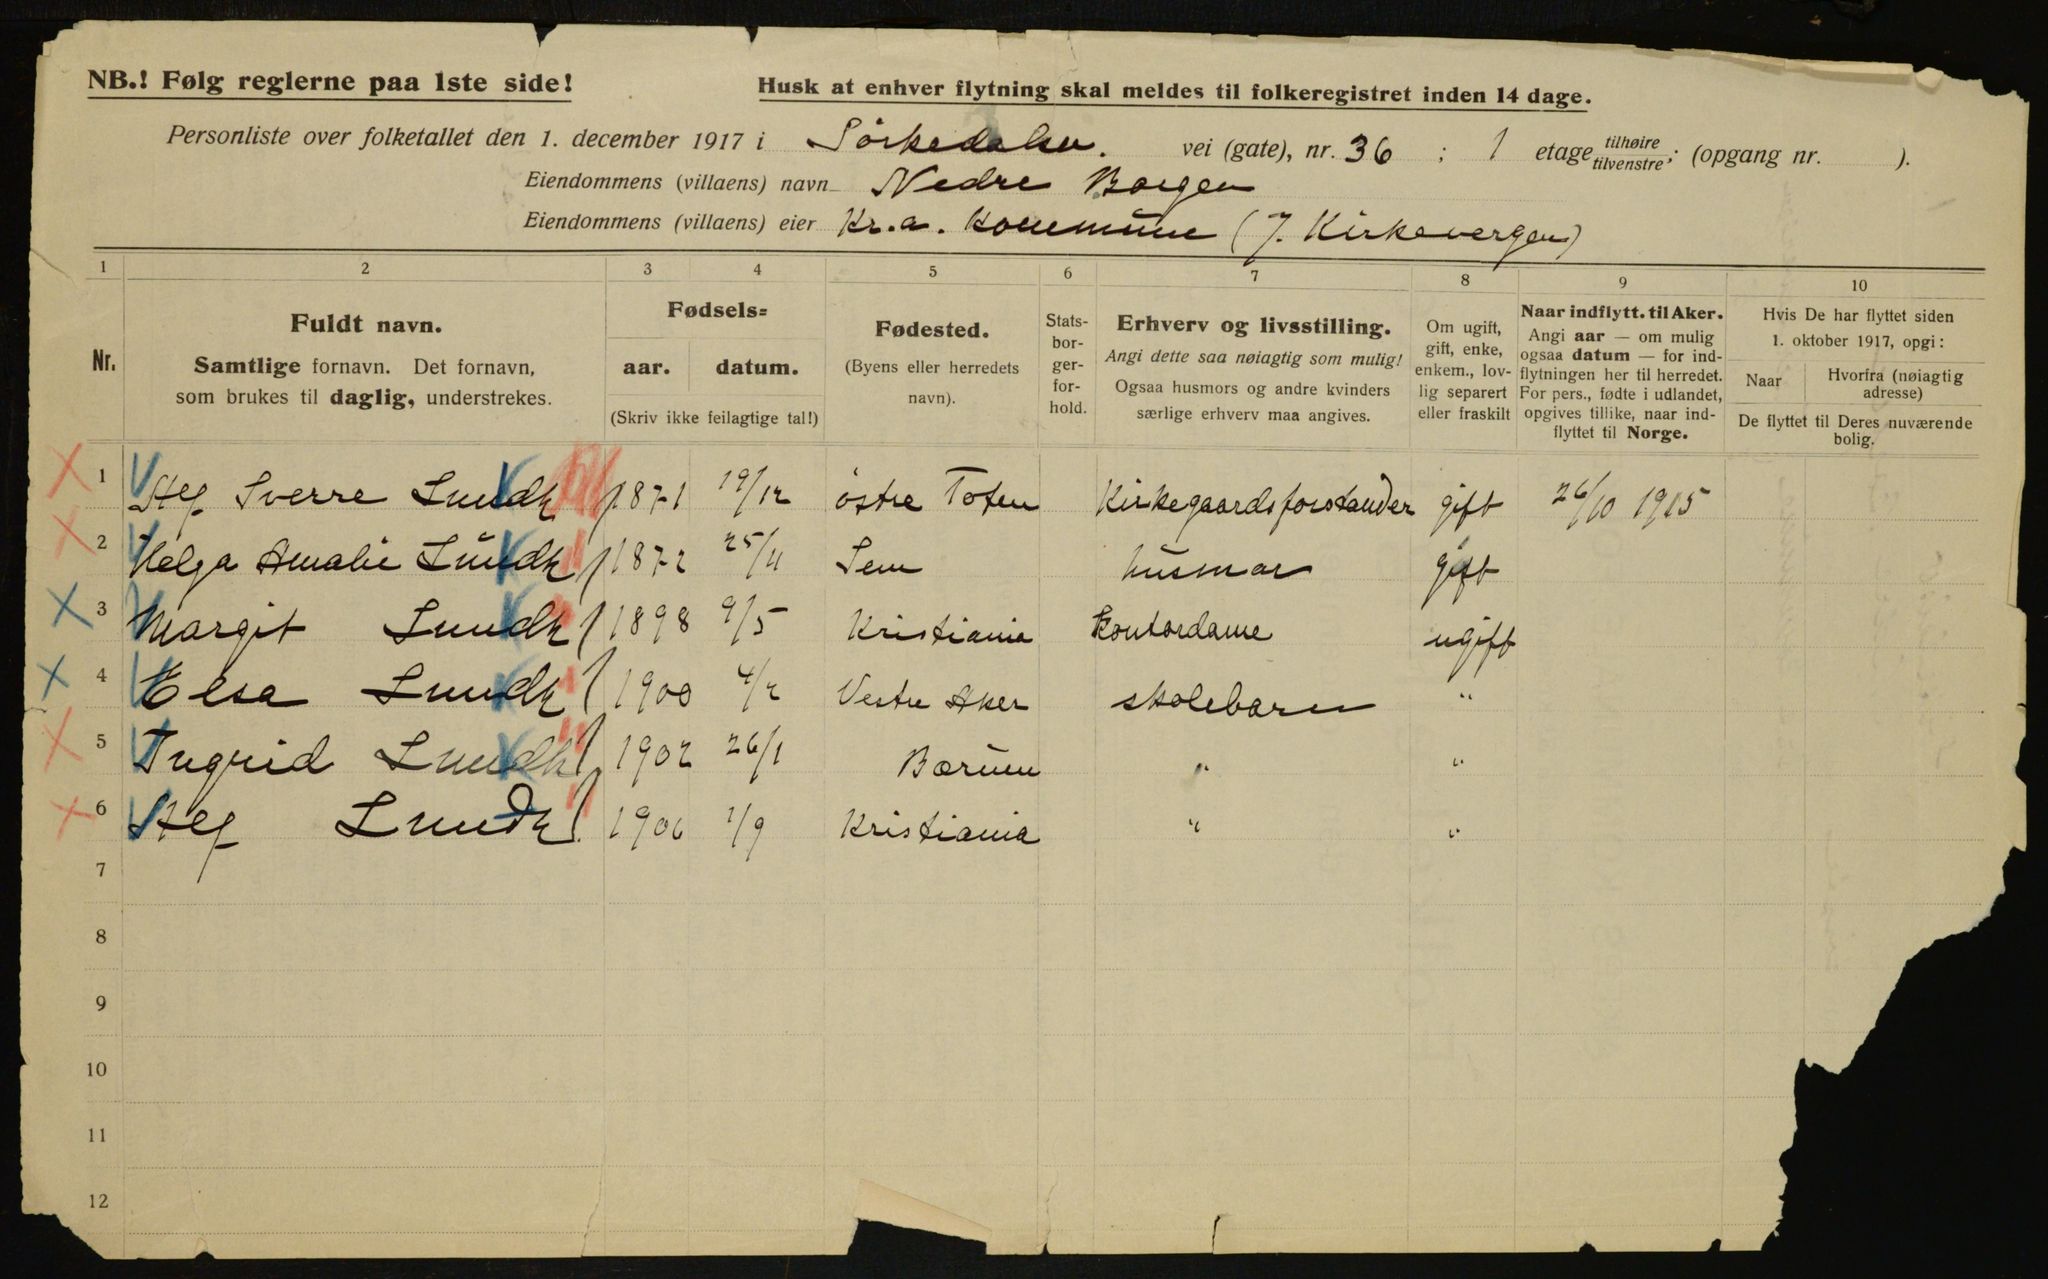 NB.! Følg reglerne paa 1ste side!
Husk at enhver flytning skal meldes til folkeregistret inden 14 dage.
Personliste over folketallet den 1. december 1917 i Sörkedalsv. vei (gate), nr. 36 ; 1 etage tilhøire tilvenstre; (opgang nr. ).
Eiendommens (villaens) navn Nedre Borgen
Eiendommens (villaens) eier Kr.a. kommune (J. Kirkevergen)
1 2 3 4 5 6 7 8 9 10
Nr.
Fuldt navn.
Samtlige fornavn. Det fornavn,
som brukes til daglig, understrekes.
Fødsels=
aar. datum.
(Skriv ikke feilagtige tal!)
Fødested.
(Byens eller herredets
navn).
Stats-
bor-
ger-
for-
hold.
Erhverv og livsstilling.
Angi dette saa nøiagtig som mulig!
Ogsaa husmors og andre kvinders
særlige erhverv maa angives.
Om ugift,
gift, enke,
enkem., lov-
lig separert
eller fraskilt
Naar indflytt. til Aker.
Angi aar — om mulig
ogsaa datum — for ind-
flytningen her til herredet.
For pers., fødte i udlandet,
opgives tillike, naar ind-
flyttet til Norge.
Hvis De har flyttet siden
1. oktober 1917, opgi:
Naar
Hvorfra (nøiagtig
adresse)
De flyttet til Deres nuværende
bolig.
1 Alf Sverre Lundh 1871 19/12 östre Toten Kirkegaardsforstander gift 26/10 1915
2 Helga Amalie Lundh 1872 25/11 Sem husmor gift
3 Margit Lundh 1898 9/5 Kristiania Kontordame ugift
4 Elsa Lundh 1900 4/2 Vestre Aker skolebarn "
5 Ingrid Lundh 1902 26/1 Bærum " "
6 Alf Lundh 1906 1/9 Kristiania " "
7
8
9
10
11
12